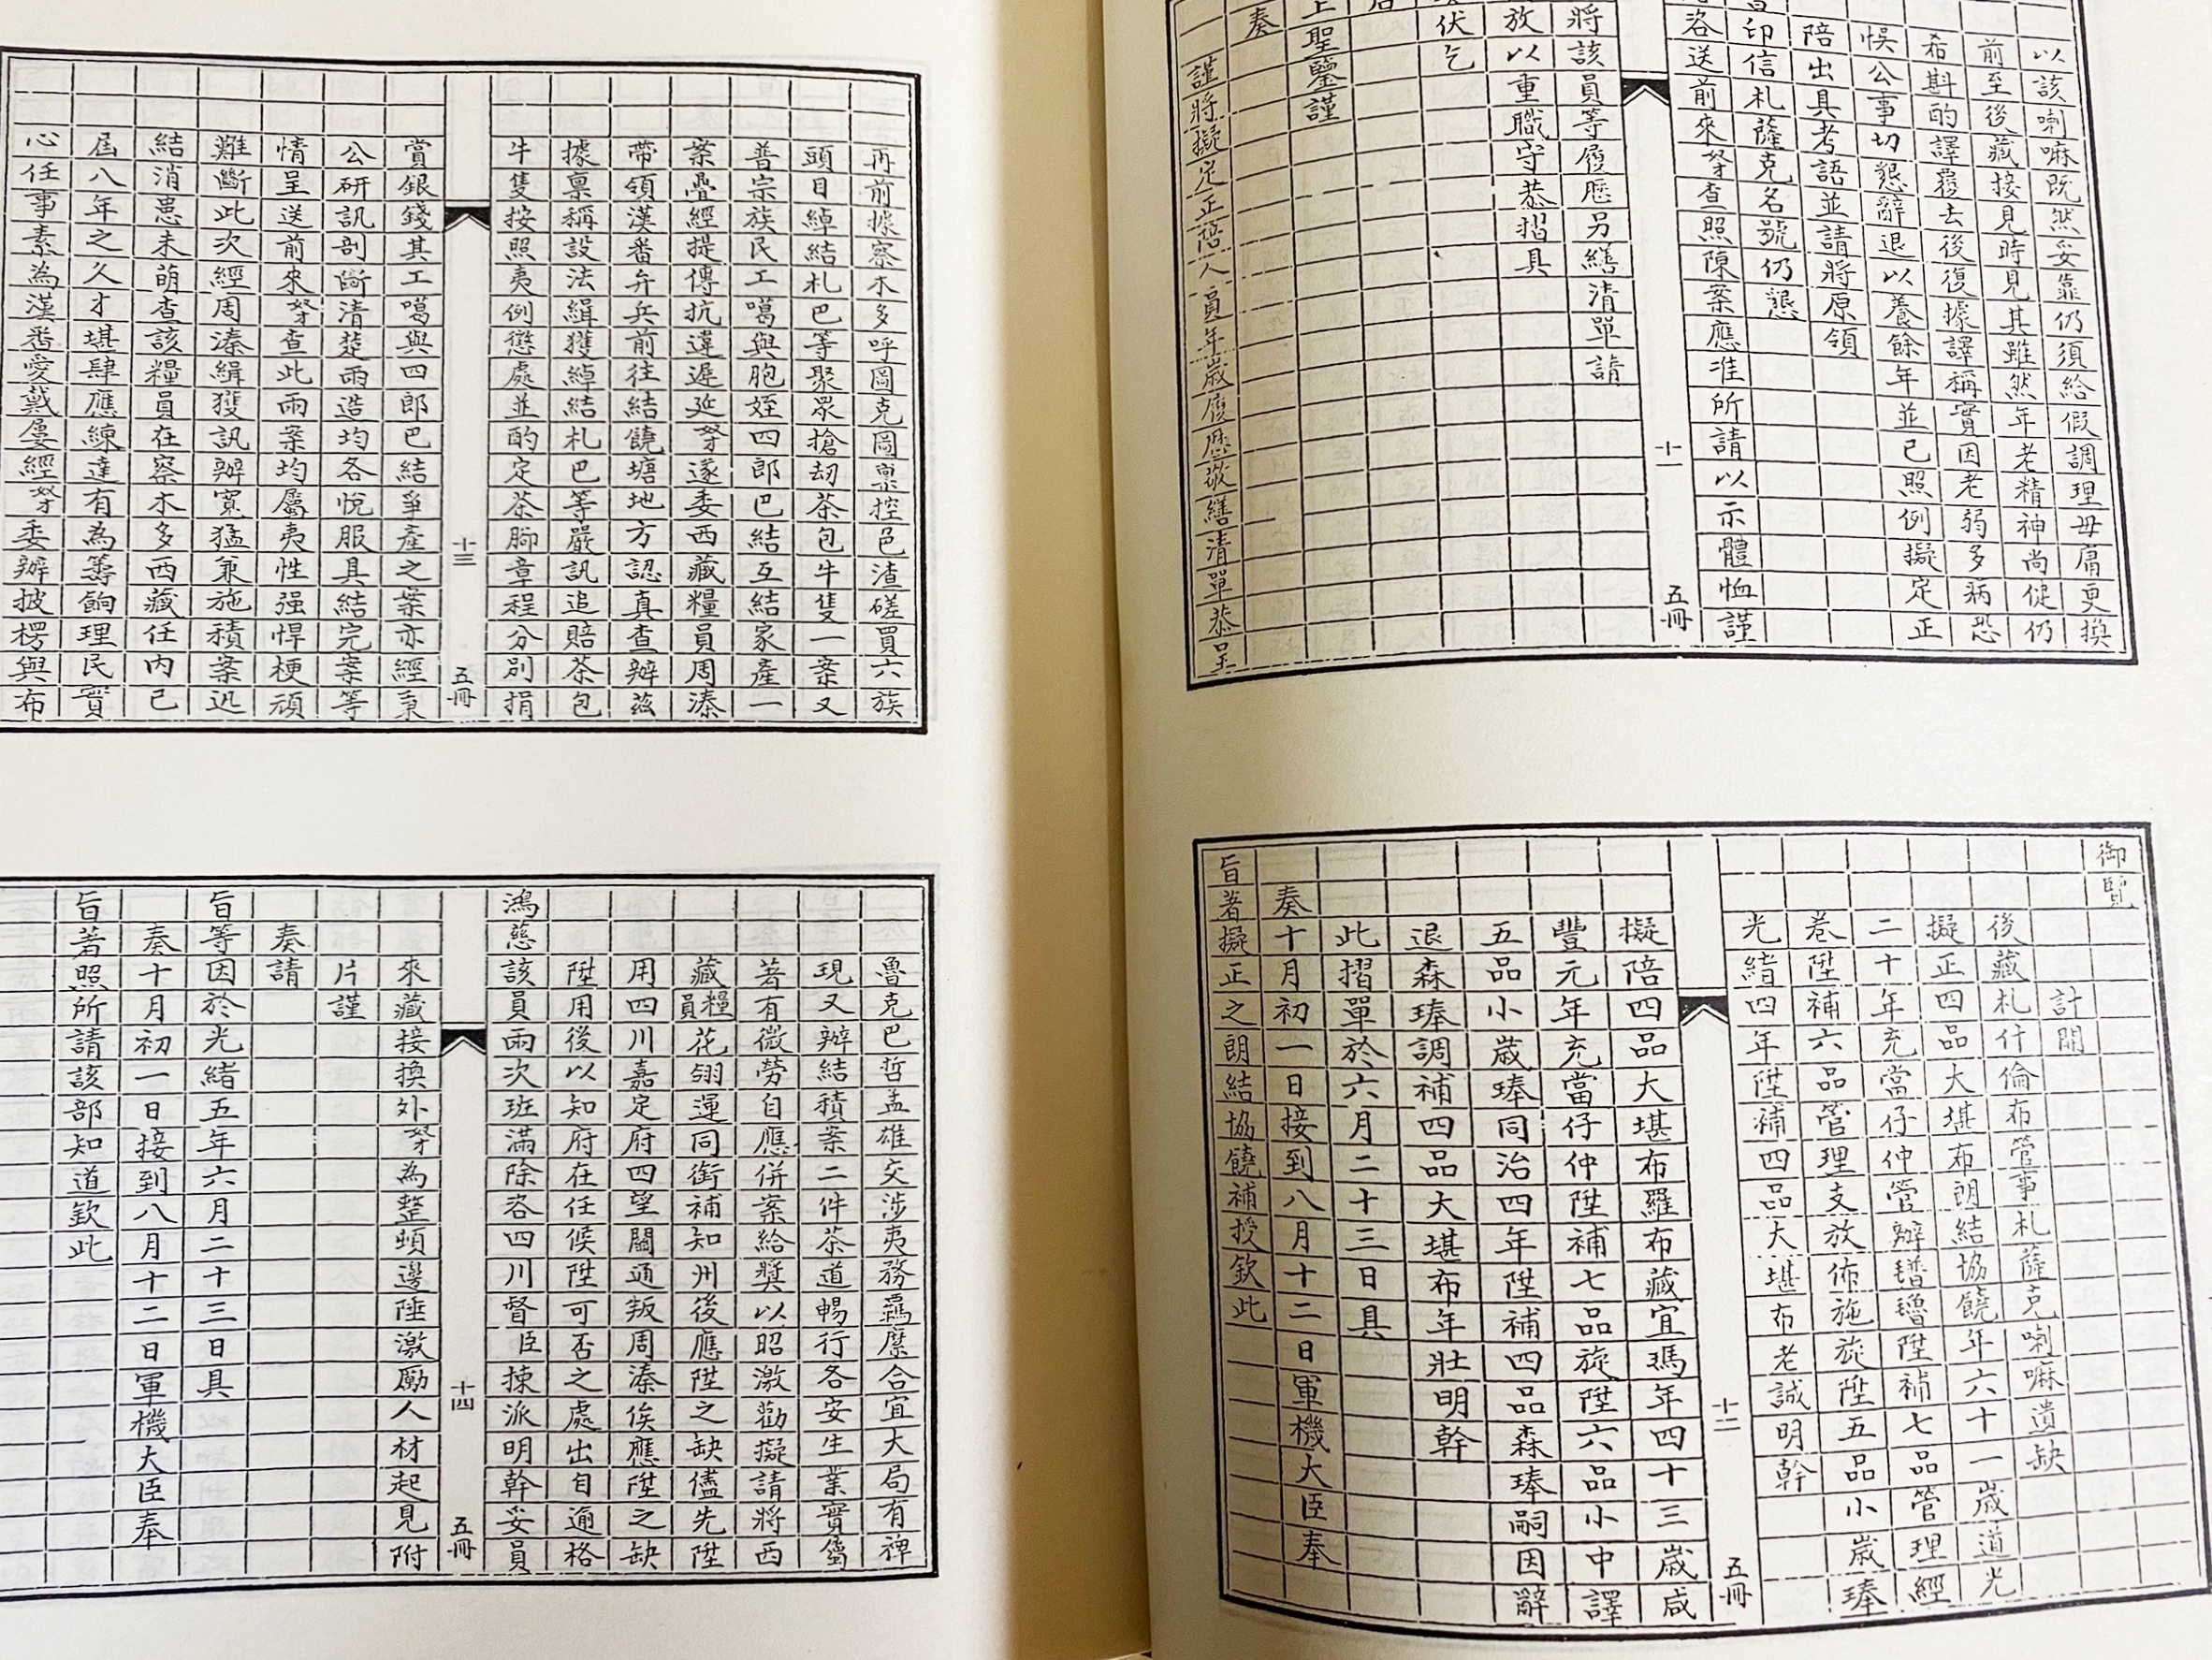 以該喇嘛既然妥靠仍須給假調理毋庸更換
前至後藏接見時見其雖然年老精神尚健仍
希斟酌譯覆去後復據譯稱實因老弱多病恐
悞公事切懇辭退以養餘年並已照例擬定正
陪出具考語並請將原領
印信札薩克名號仍懇
咨送前來奴才查照陳案應准所請以示體恤謹
十一 五冊
將該員等履歷另繕清單請
放以重職守恭摺具
伏乞
上聖鑒謹
奏
謹將擬定正陪人員年歲履歷敬繕清單恭呈
御覽
計開
後藏札什倫布管事札薩克喇嘛遺缺
擬正四品大堪布朗結協饒年六十一歲道光
二十年充當仔仲管辦璔璿陞補七品管理經
卷陞補六品管理支放佈施旋陞五品小歲琫
光緒四年陞補四品大堪布老誠明幹
十二 五冊
擬陪四品大堪布羅布藏宜瑪年四十三歲咸
豐元年充當仔仲陞補七品旋陞六品小中譯
五品小歲琫同治四年陞補四品森琫嗣因辭
退森琫調補四品大堪布年壯明幹
此摺單於六月二十三日具
奏十月初一日接到八月十二日軍機大臣奉
旨著擬正之朗結協饒補授欽此
再前據察木多呼圖克圖稟控邑渣磋買六族
頭目綽結札巴等聚眾搶刼茶包牛隻一案又
普宗族民工噶與胞姪四郎巴結互結家產一
案疊經提傳抗違遲延奴才遂委西藏糧員周溱
帶領漢番弁兵前往結饒塘地方認真查辦茲
據稟稱設法緝獲綽結札巴等嚴訊追賠茶包
牛隻按照夷例懲處並酌定茶腳章程分別捐
十三 五冊
賞銀錢其工噶與四郎巴結爭產之案亦經秉
公研訊剖斷清楚兩造均各悅服具結完案等
情呈送前來奴才查此兩案均屬夷性强悍梗頑
難斷此次經周溱緝獲訊辦寬猛兼施積案迅
結消患未萌查該糧員在察木多西藏任內已
屆八年之久才堪肆應練達有為籌餉理民實
心任事素為漢番愛戴屢經奴才委辦披楞與布
魯克巴哲孟雄交涉夷務羈縻合宜大局有裨
現又辦結積案二件茶道暢行各安生業實屬
著有微勞自應併案給獎以昭激勸擬請將西
藏糧員花翎運同銜補知州後應陞之缺儘先陞
用四川嘉定府四望關通叛周溱俟應陞之缺
陞用後以知府在任候陞可否之處出自逾格
鴻慈該員兩次班滿除咨四川督臣揀派明幹妥員
十四 五冊
來藏接換外奴才為整頓邊陲激勵人材起見附
片謹
奏請
旨等因於光緒五年六月二十三日具
奏十月初一日接到八月十二日軍機大臣奉
旨著照所請該部知道欽此